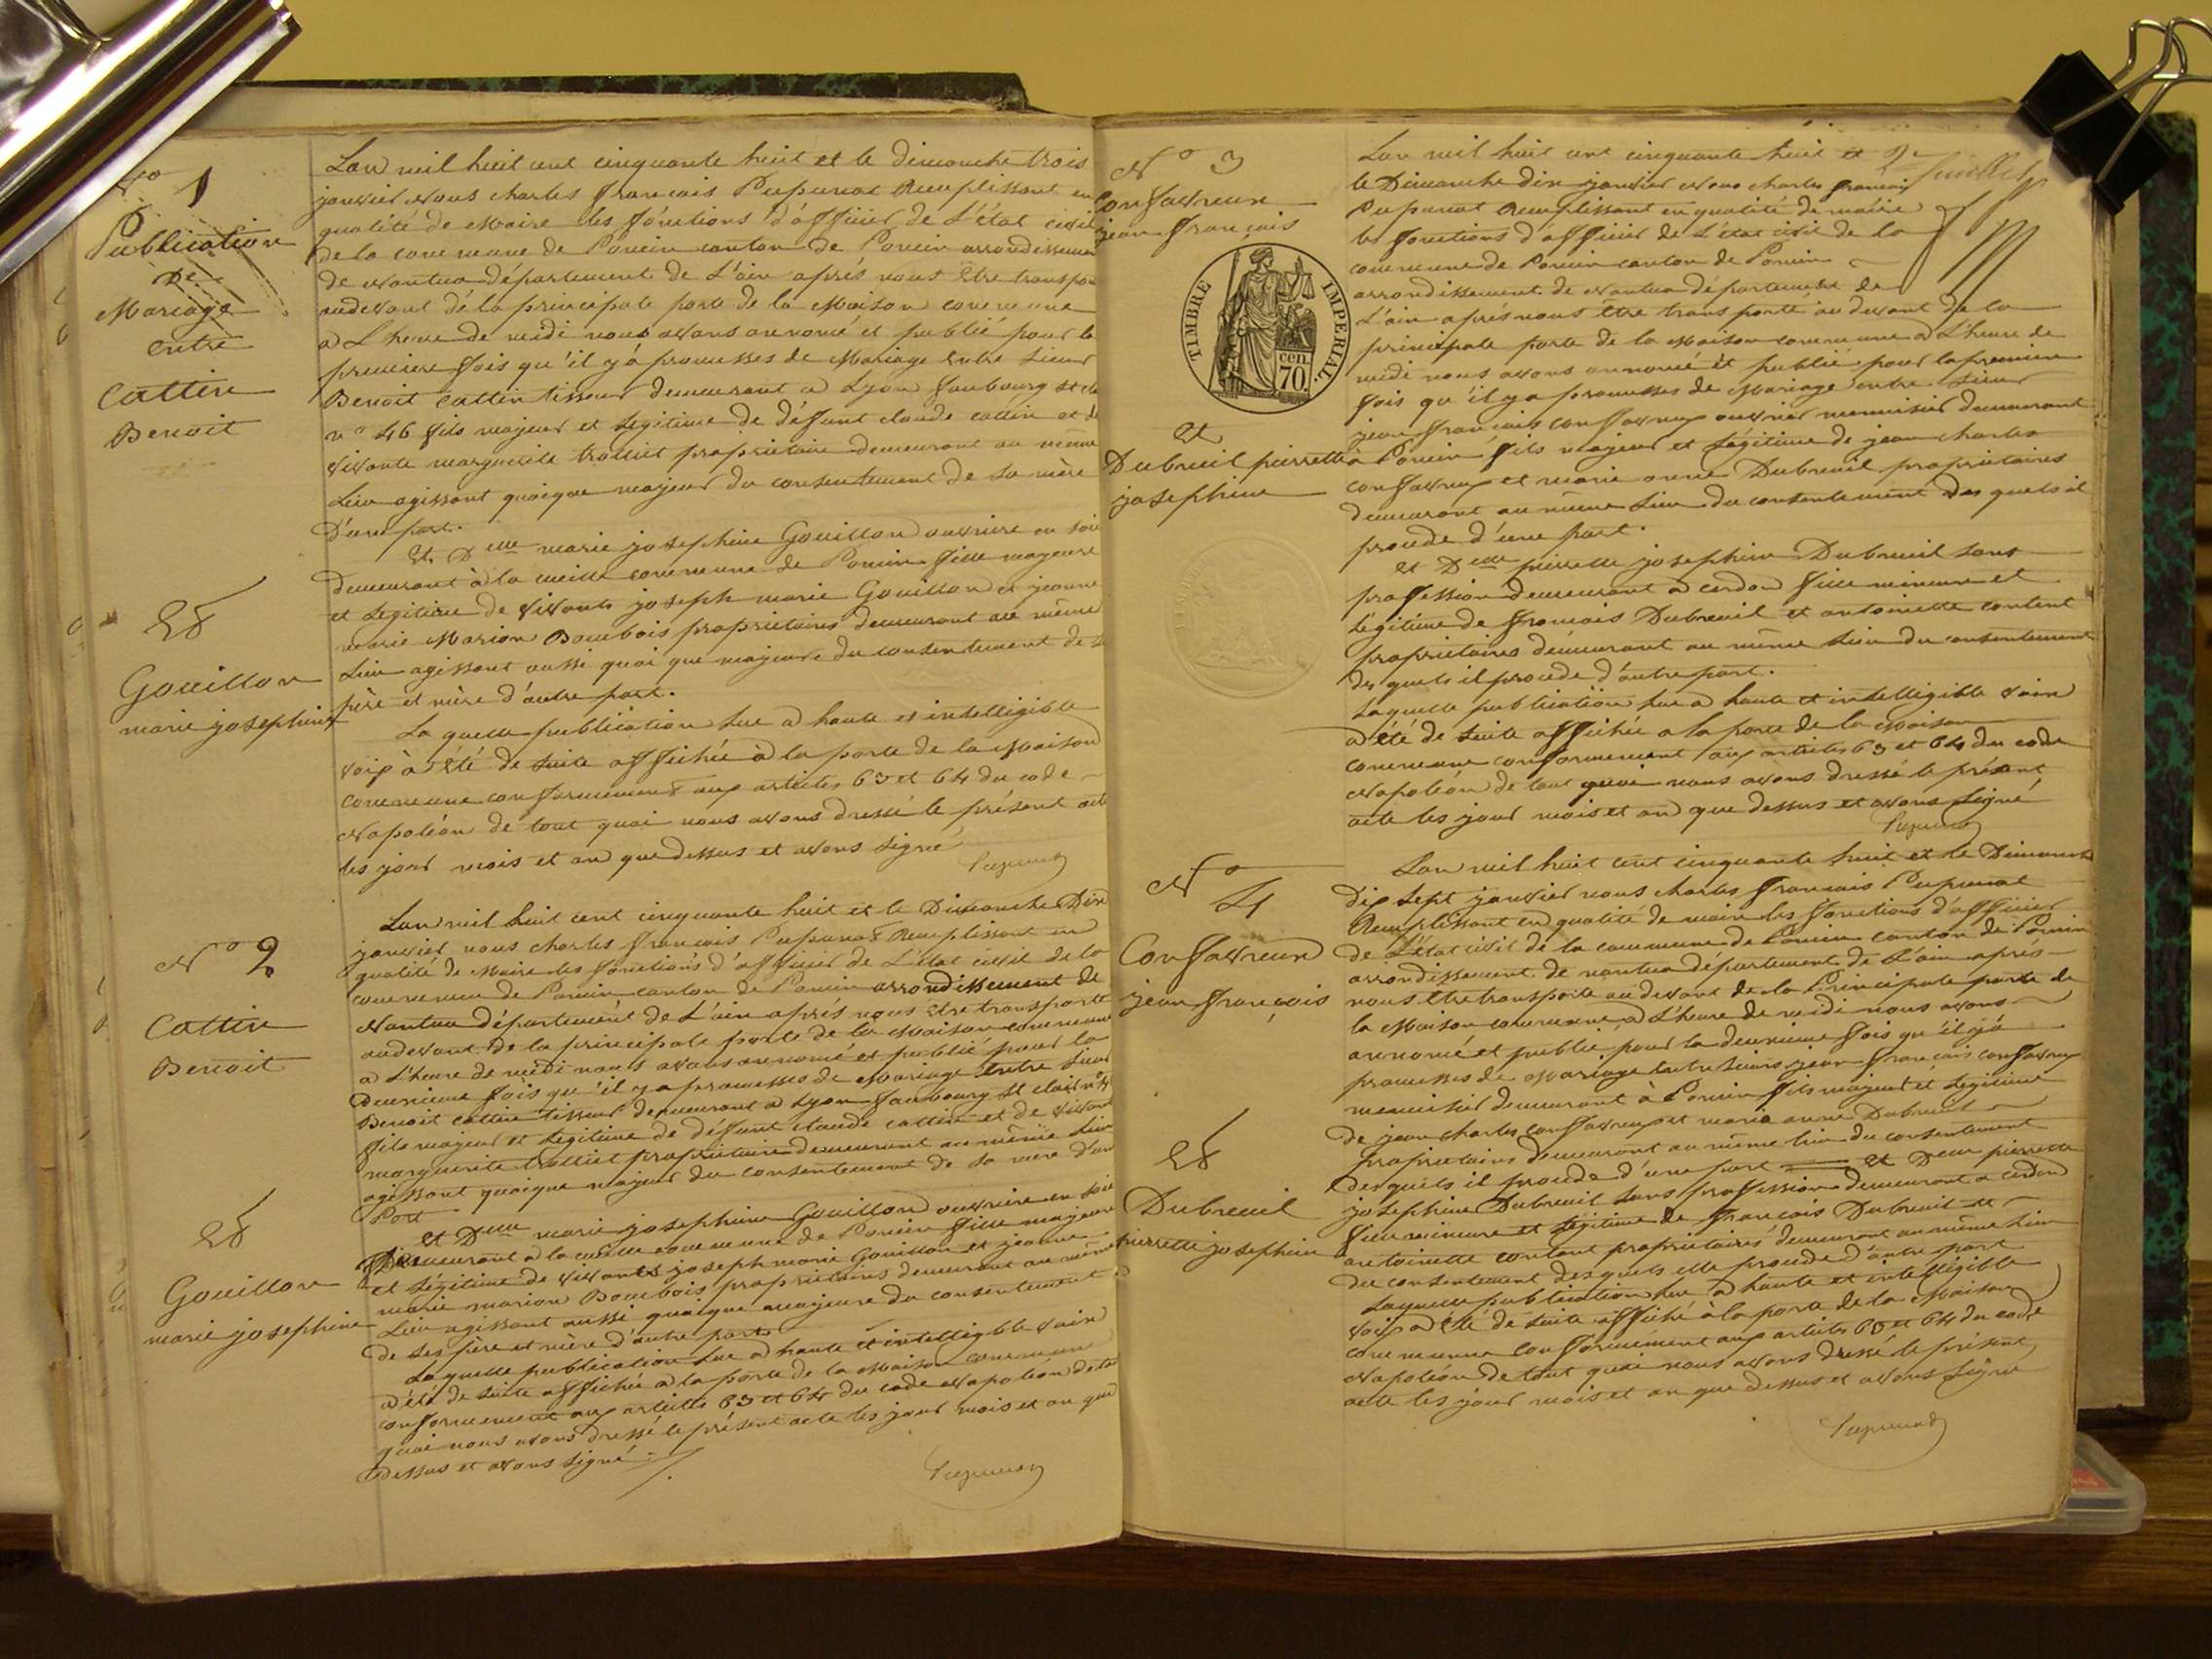 N° 1
Publication
De
Mariage
entre
Cattin
Benoit
Et
Gouillon
marie josephine
L'an mil huit cent cinquante huit et le dimanche trois
janvier Nous charles françois Pupunat Remplissant en
qualité de Maire les fonctions d'officier de L'état civil
de la commune de Poncin canton de Poncin arrondissement
de Nantua département de L'ain aprés nous être transpor
audevant dé la principale porte de la Maison commune
a L'heure de midi nous avons annoncé et publié pour la
premiere fois qu'il y à promesses de Mariage entre sieur
Benoit Cattin tisseur demeurant a Lyon faubourg st cl
n° 46 fils majeur et Legitime de défunt claude cattin et de
vivante marguerite trolliet propriétaire demeurant au même
Lieu agissant quoique majeur du consentement de sa mère
D'une part.
Et Delle marie josephine Gouillon ouvrière en soie
demeurant à la cueille commune de Poncin fille majeure
et Legitime de vivants joseph marie Gouillon et jeanne
marie Marion Bombois propriétaires demeurant au même
Lieu agissant aussi quoi que majeure du consentement de s
père et mère d'autre part.
La quelle publication Lue a haute et intelligible
voix à été de suite affichée à la porte de la Maison
commune conformement aux articles 63 et 64 du code
Napoléon de tout quoi nous avons dressé le présent acte
les jour mois et an que dessus et avons signé
Pupunat
N° 2
Cattin
Benoit
Et
Gouillon
marie josephine
L'an mil huit cent cinquante huit et le Dimanche Dix
janvier nous charles françois Pupunat Remplissant en
qualité de Maire les fonctions d'officier de L'état civil de la
commune de Poncin canton de Poncin arrondissement de
Nantua département de L'ain aprés nous être transporté
audevant de la principale porte de la Maison commune
a L'heure de midi nous avons annoncé et publié pour la
Deuxieme fois qu'il y a promesses de Mariage entre sieur
Benoit Cattin tisseur demeurant a Lyon faubourg st clair n°
fils majeur et Legitime de défunt claude cattin et de vivante
marguerite trolliet propriétaire demeurant au même Lieu
agissant quoique majeur du consentement de sa mere d'une
Part
Et Delle marie josephine Gouillon ouvrière en soie
Demeurant a la cueille commune de Poncin fille majeure
et Légitime de vivants joseph marie Gouillon et jeanne
marie marion Bombois propriétaires demeurant au même
Lieu agissant aussi quoique majeure du consentement
de ses père et mère d'autre part
Laquelle publication Lue a haute et intelligible voix
a été de suite affichée a la porte de la Maison commune
conformement aux articles 63 et 64 du code Napoléon de tout
quoi nous avons dressé le présent acte les jour mois et an que
dessus et avons signé
Pupunat
N° 3
Confavreux
jean françois
TIMBRE IMPERIAL
cen. 70.
Et
Dubreuil pierrette
josephine
2e feuillet
L'an mil huit cent cinquante huit et
le Dimanche dix janvier Nous charles françois
Pupunat Remplissant en qualité de maire
les fonctions d'officier de L'état civil de la
commune de Poncin canton de Poncin
arrondissement de Nantua département de
L'ain aprés nous être transporté au devant de la
principale porte de la Maison commune a L'heure de
midi nous avons annoncé et publié pour la premiere
fois qu'il y a promesses de Mariage entre sieur
jean françois confavreux ouvrier menuisier demeurant
à Poncin fils majeur et Légitime de jean charles
confavreux et marie anne Dubreuil propriétaires
demeurant au même Lieu du consentement des quels il
procede d'une part.
Et Delle pierrette josephine Dubreuil sans
profession demeurant a cerdon fille mineure et
Légitime de françois Dubreuil et antoinette contant
propriétaires demeurant au même Lieu du consentement
des quels il procede d'autre part.
Laquelle publication Lue a haute et intelligible voix
a été de suite affichée a la porte de la Maison
commune conformement aux articles 63 et 64 du code
Napoléon de tout quoi nous avons dressé le présent
acte les jour mois et an que dessus et avons signé
Pupunat
N° 4
Confavreux
jean françois
Et
Dubreuil
pierrette josephine
L'an mil huit cent cinquante huit et le Dimanche
dix sept janvier nous charles françois Pupunat
Remplissant en qualité de maire les fonctions d'officier
de L'état civil de la commune de Poncin canton de Poncin
arrondissement de nantua département de L'ain aprés
nous être transporté au devant de la Principale porte de
la Maison commune a L'heure de midi nous avons
annoncé et publié pour la deuxieme fois qu'il y à
promesses de Mariage entre sieur jean françois confavreux
menuisier demeurant à Poncin fils majeur et Légitime
de jean charles confavreux et marie anne Dubreuil
propriétaires demeurant au même Lieu du consentement
desquels il procede d'une part Et Delle pierrette
josephine Dubreuil sans profession demeurant a cerdon
fille mineure et Légitime de françois Dubreuil et
antoinette contant propriétaires demeurant au même Lieu
du consentement desquels elle procede d'autre part
Laquelle publication Lue a haute et intelligible
voix a été de suite affiché à la porte de la Maison
commune conformément aux articles 63 et 64 du code
Napoléon de tout quoi nous avons dressé le présent
acte les jour mois et an que dessus et avons signé
Pupunat